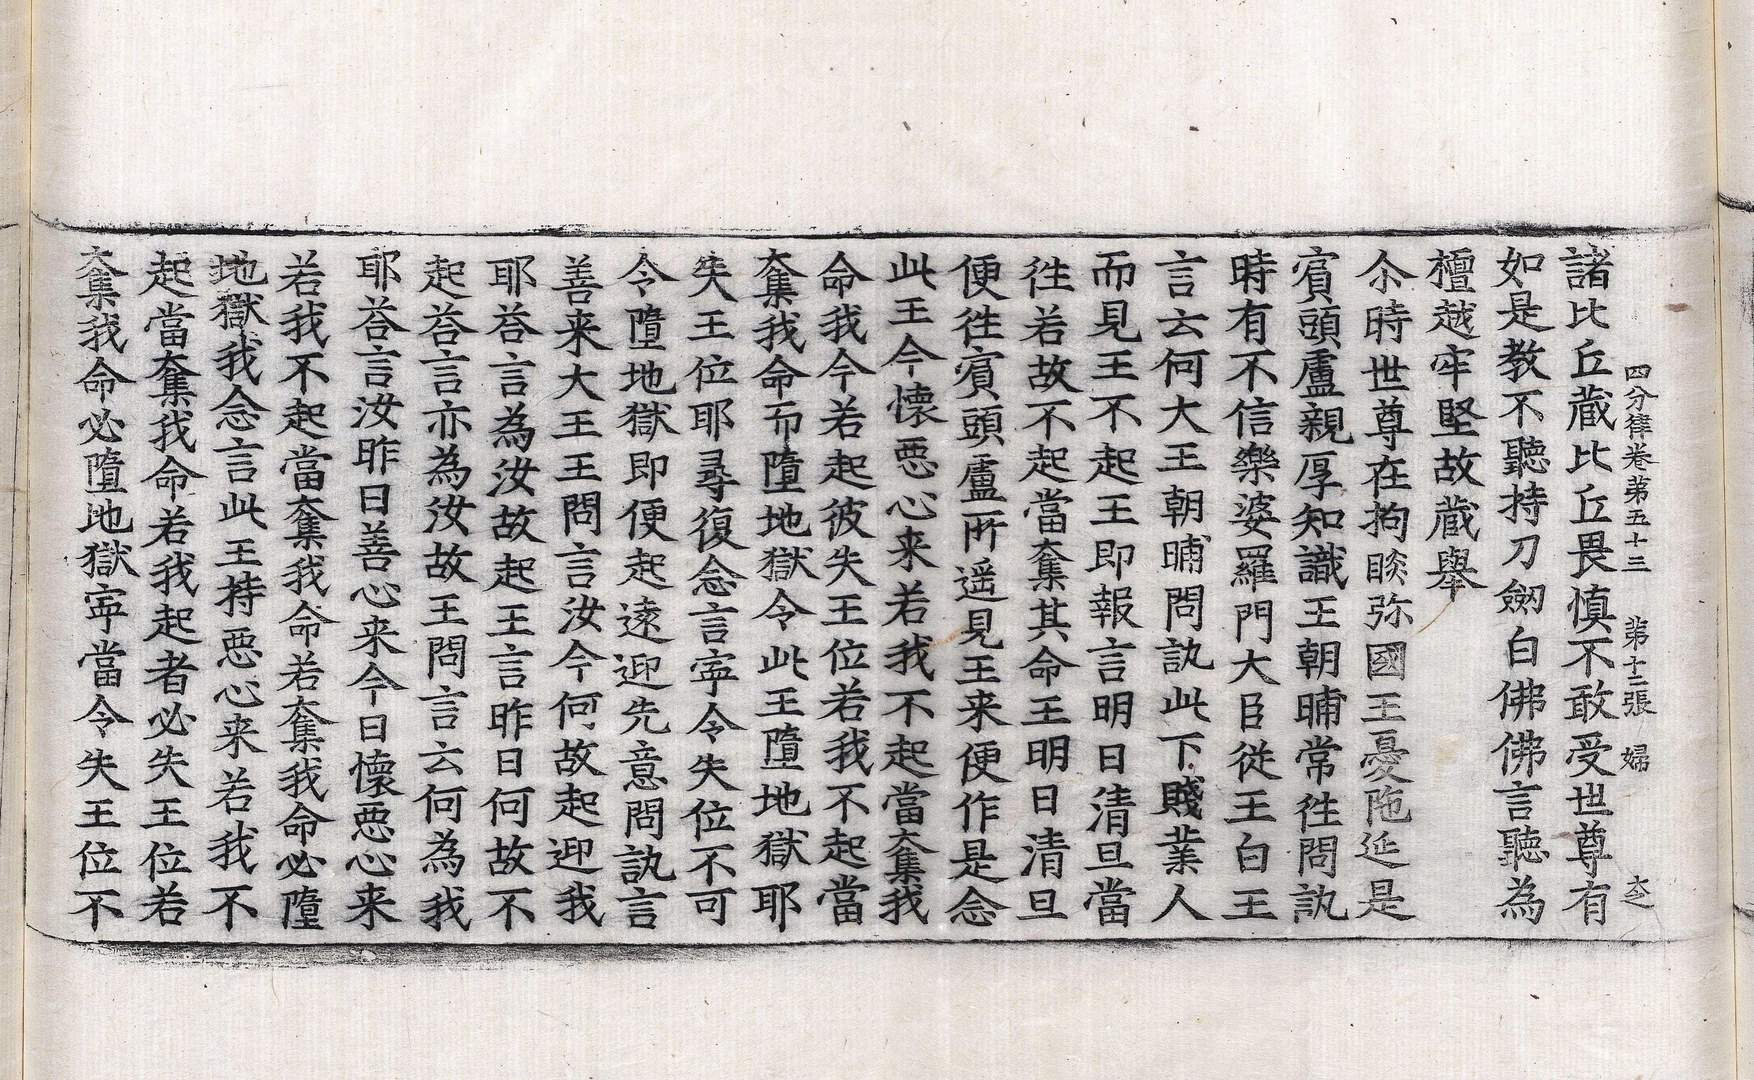 四分律卷第五十三　第十二張　婦　大之
諸比丘藏比丘畏慎不敢受世尊有
如是教不聽持刀劒白佛佛言聽為
檀越牢堅故藏舉
尒時世尊在拘睒弥國王憂陁延是
賔頭盧親厚知識王朝晡常徃問訊
時有不信樂婆羅門大臣從王白王
言云何大王朝晡問訊此下賤業人
而見王不起王即報言明日清旦當
徃若故不起當奪其命王明日清旦
便徃賔頭盧所遥見王来便作是念
此王今懷惡心来若我不起當奪我
命我今若起彼失王位若我不起當
奪我命而墮地獄令此王墮地獄耶
失王位耶尋復念言寜令失位不可
令墮地獄即便起遠迎先意問訊言
善来大王王問言汝今何故起迎我
耶荅言為汝故起王言昨日何故不
起荅言亦為汝故王問言云何為我
耶荅言汝昨日善心来今日懷惡心来
若我不起當奪我命若奪我命必墮
地獄我念言此王持惡心来若我不
起當奪我命若我起者必失王位若
奪我命必墮地獄寜當令失王位不